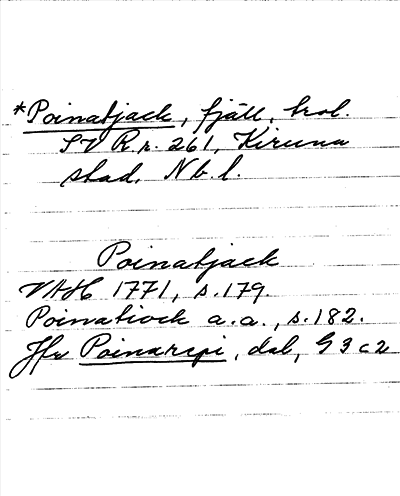 *Poinatjack, fjäll, trol.
SV R.r. 261, Kiruna
stad, Nb.l.
Poinatjack
VAH 1771, s.179.
Poinatiock a.a., s.182.
Jfr Poinarepi, dal, G3c2